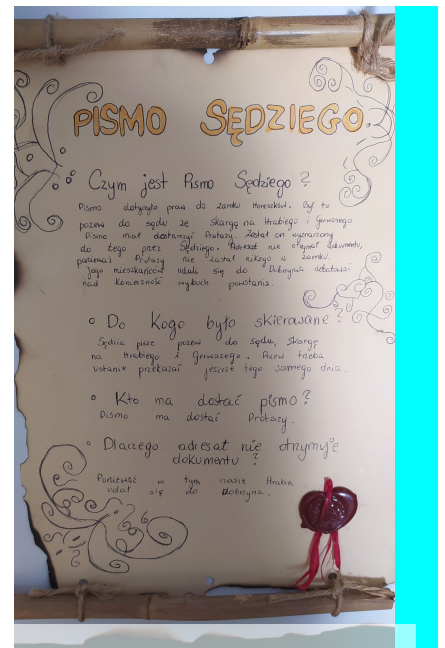 PISMO SĘDZIEGO
Czym jest Pismo Sędziego?
Pismo dotyczyło praw do zamku Horeszków. Był to
pozew do sądu ze skargę na Hrabiego i Gerwazego
Pismo miał dostarczyć Protazy. Został on wyznaczony
do tego przez Sędziego. Adresat nie otrzymał dokumentu,
ponieważ Protazy nie zastał nikogo w zamku.
Jego mieszkańcow udali się do Dobrzyna debatować
nad konieczność wybuch powstania.
Do Kogo było skierowane?
Sędzia pisze pozew do sądu, Skargę
na Hrabiego i Gerwazego. Pozew trzeba
ustanie przekazać jeszcze tego samego dnia.
Kto ma dostać pismo?
Pismo ma dostać Protazy.
Dlaczego adresat nie otrzymuje
dokumentu?
Ponieważ w tym czasie Hrabia
udał się do Dobrzyna.